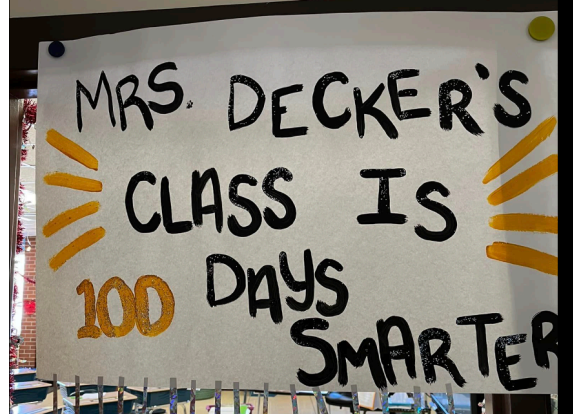 MRS. DECKER'S
CLASS IS
100 DAYS
SMARTER